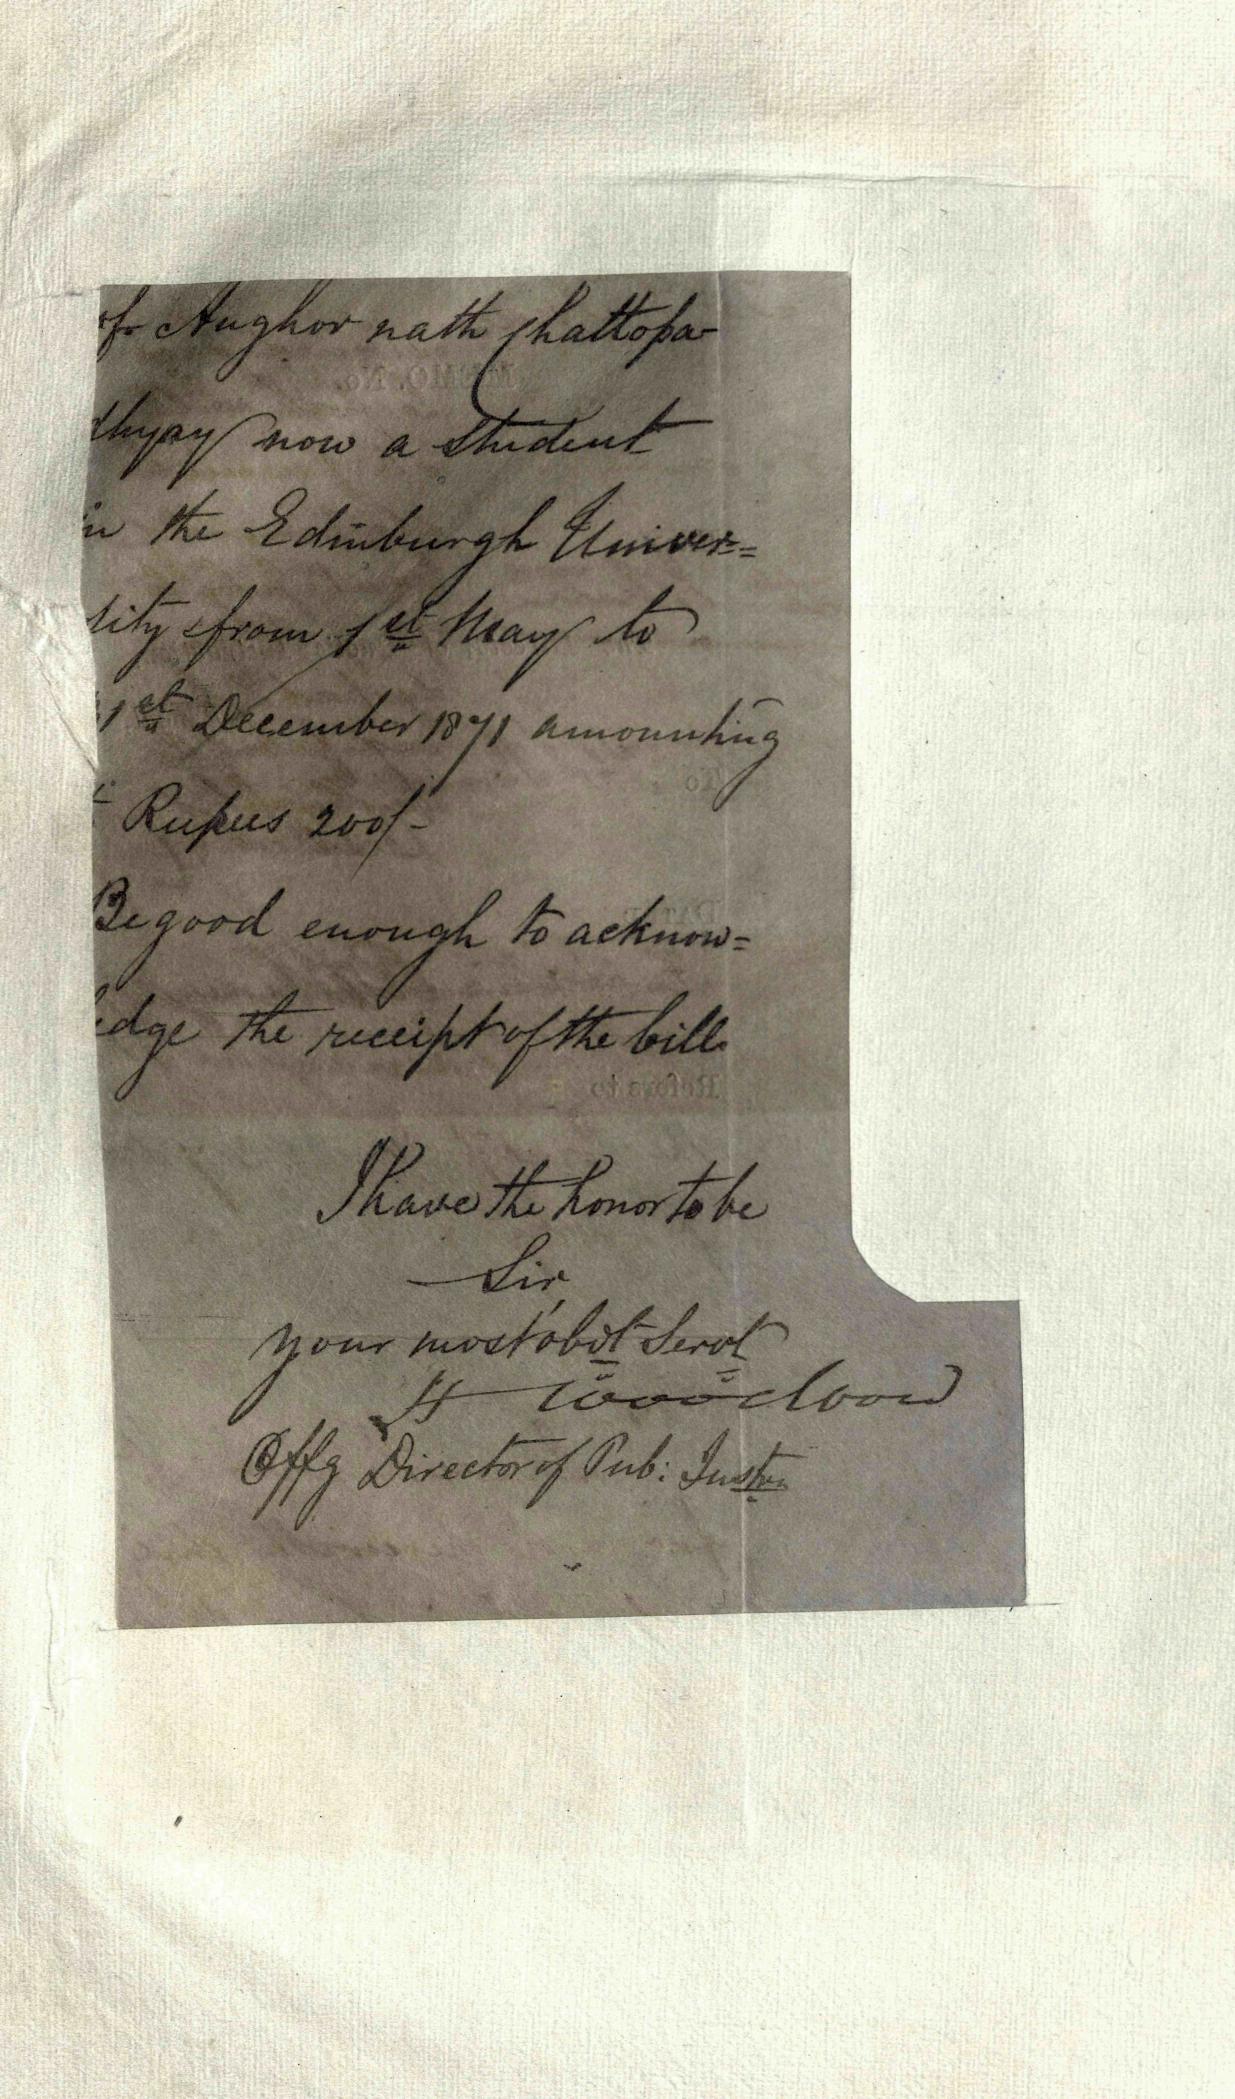 of Aughor nath Chattopa-
dhyay now a student
in the Edinburgh Univer=
sity from 1st May to
31st December 1871 amounting
Rupees 200/-
Be good enough to acknow=
ledge the receipt of the bill.
I have the honor to be
Sir,
your most obdt Servt
H Woodrow
Offg Director of Pub: Instrn
MEMO. No.
To
DATE
Refers to